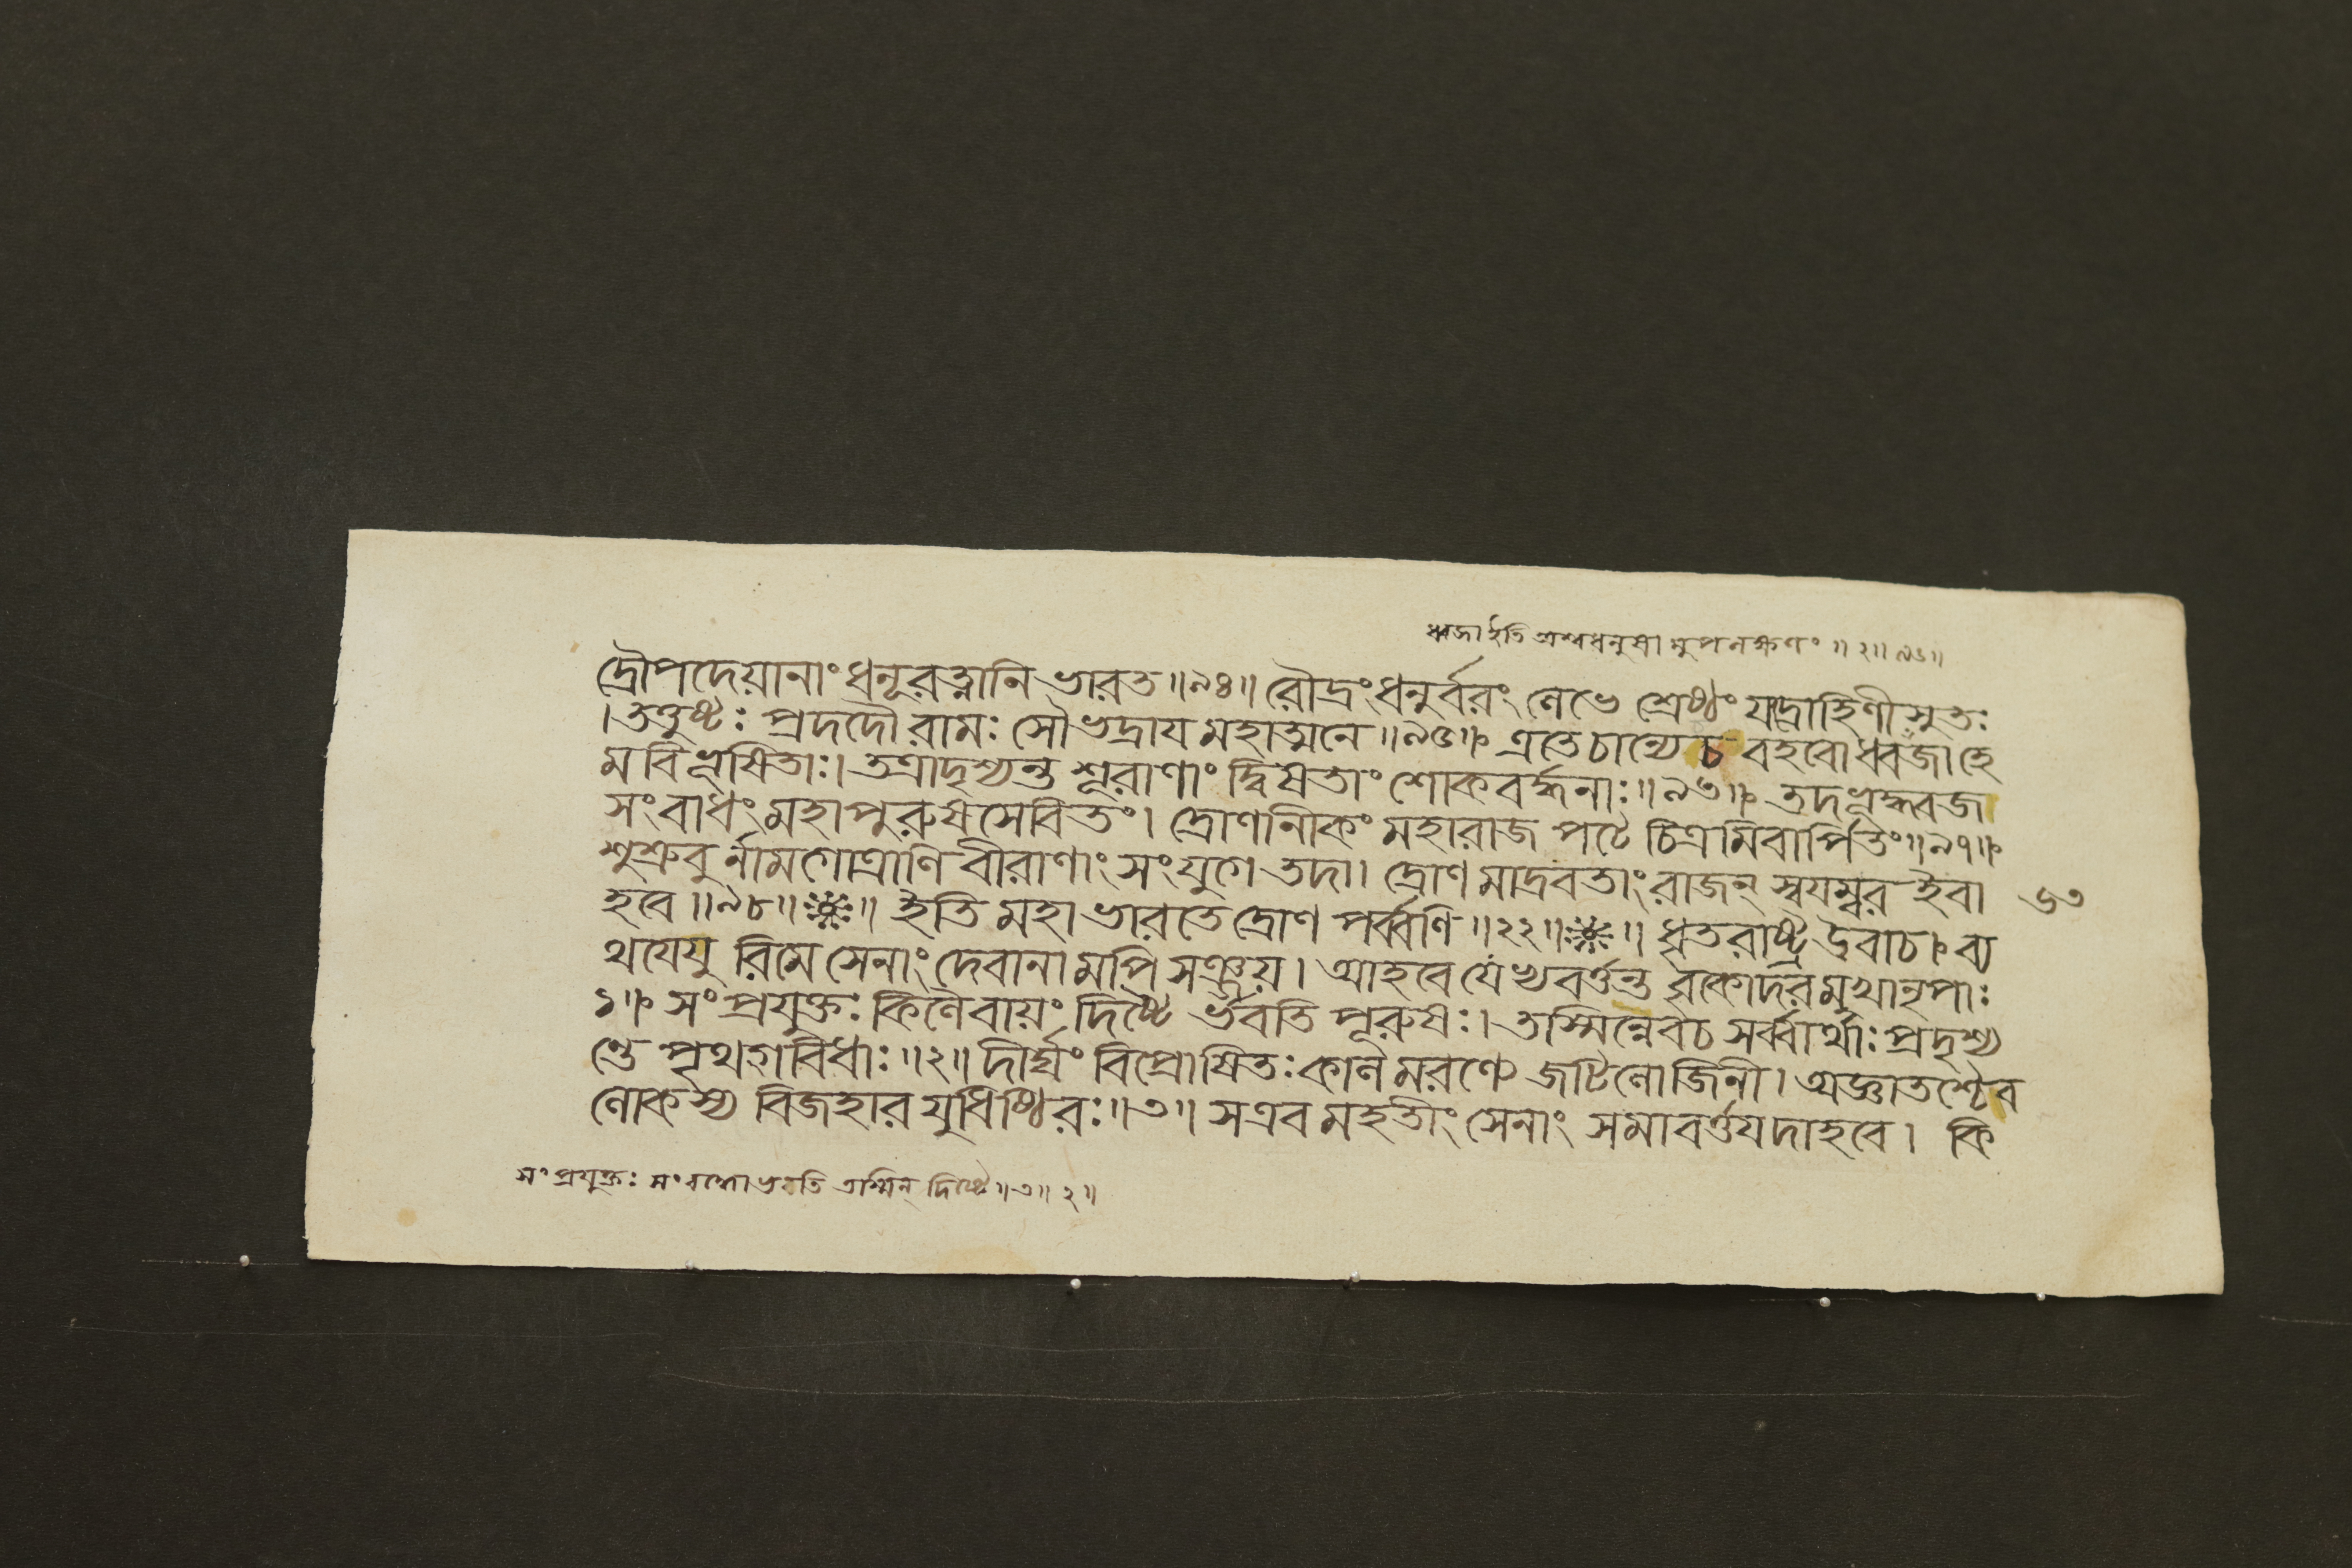 ধ্বজা ইতি অশ্বধনুষা মুপলক্ষণং ॥ ২॥ ৯৬॥
দ্রৌপদেয়ানাং ধনূরত্নানি ভারত ॥৯৪॥ রৌদ্রং ধনুর্বরং লেভে শ্রেষ্ঠং যদ্রোহিণীসুতঃ
। তত্তুষ্টঃ প্রদদৌ রামঃ সৌভদ্রায মহাত্মনে ॥৯৫॥ এতে চান্যে চ বহবো ধ্বজা হে
ম বিভূষিতাঃ। তত্রাদৃশ্যন্ত শূরাণাং দ্বিষতাং শোকবর্দ্ধনাঃ ॥৯৬॥ তদভূদ্ধ্বজ
সংবাধং মহাপুরুষসেবিতং। দ্রোণানিকং মহারাজ পটে চিত্রমিবার্পিতং ॥৯৭॥
শুশ্রুবু র্নামগোত্রাণি বীরাণাং সংযুগে তদা। দ্রোণ মাদ্রবতাং রাজন্ স্বযম্বর ইবা
হবে ॥৯৮॥ ॥ ইতি মহাভারতে দ্রোণ পর্ব্বণি ॥২২॥ ॥ ধৃতরাষ্ট্র উবাচ ব্য
৬৩
থযেযু রিমে সেনাং দেবানা মপি সঞ্জয়। আহবে যে ন্যবর্ত্তন্ত বৃকোদরমুখানৃপাঃ
১॥ সংপ্রযুক্তঃ কিলৈবায়ং দিষ্টৈ র্ভবতি পূরুষঃ। তস্মিন্নেবচ সর্ব্বার্থাঃ প্রদৃশ্য
ন্তে পৃথগ্বিধাঃ ॥২॥ দীর্ঘং বিপ্রোষিতঃ কাল মরণ্যে জটিলোজিনী। অজ্ঞাতশ্চৈব
লোকস্য বিজহার যুধিষ্ঠিরঃ ॥৩॥ সএব মহতীং সেনাং সমাবর্ত্তযদাহবে। কি
সংপ্রযুক্তঃ সংবদ্ধো ভবতি তস্মিন্ দিষ্টে ॥ ৩॥ ২॥